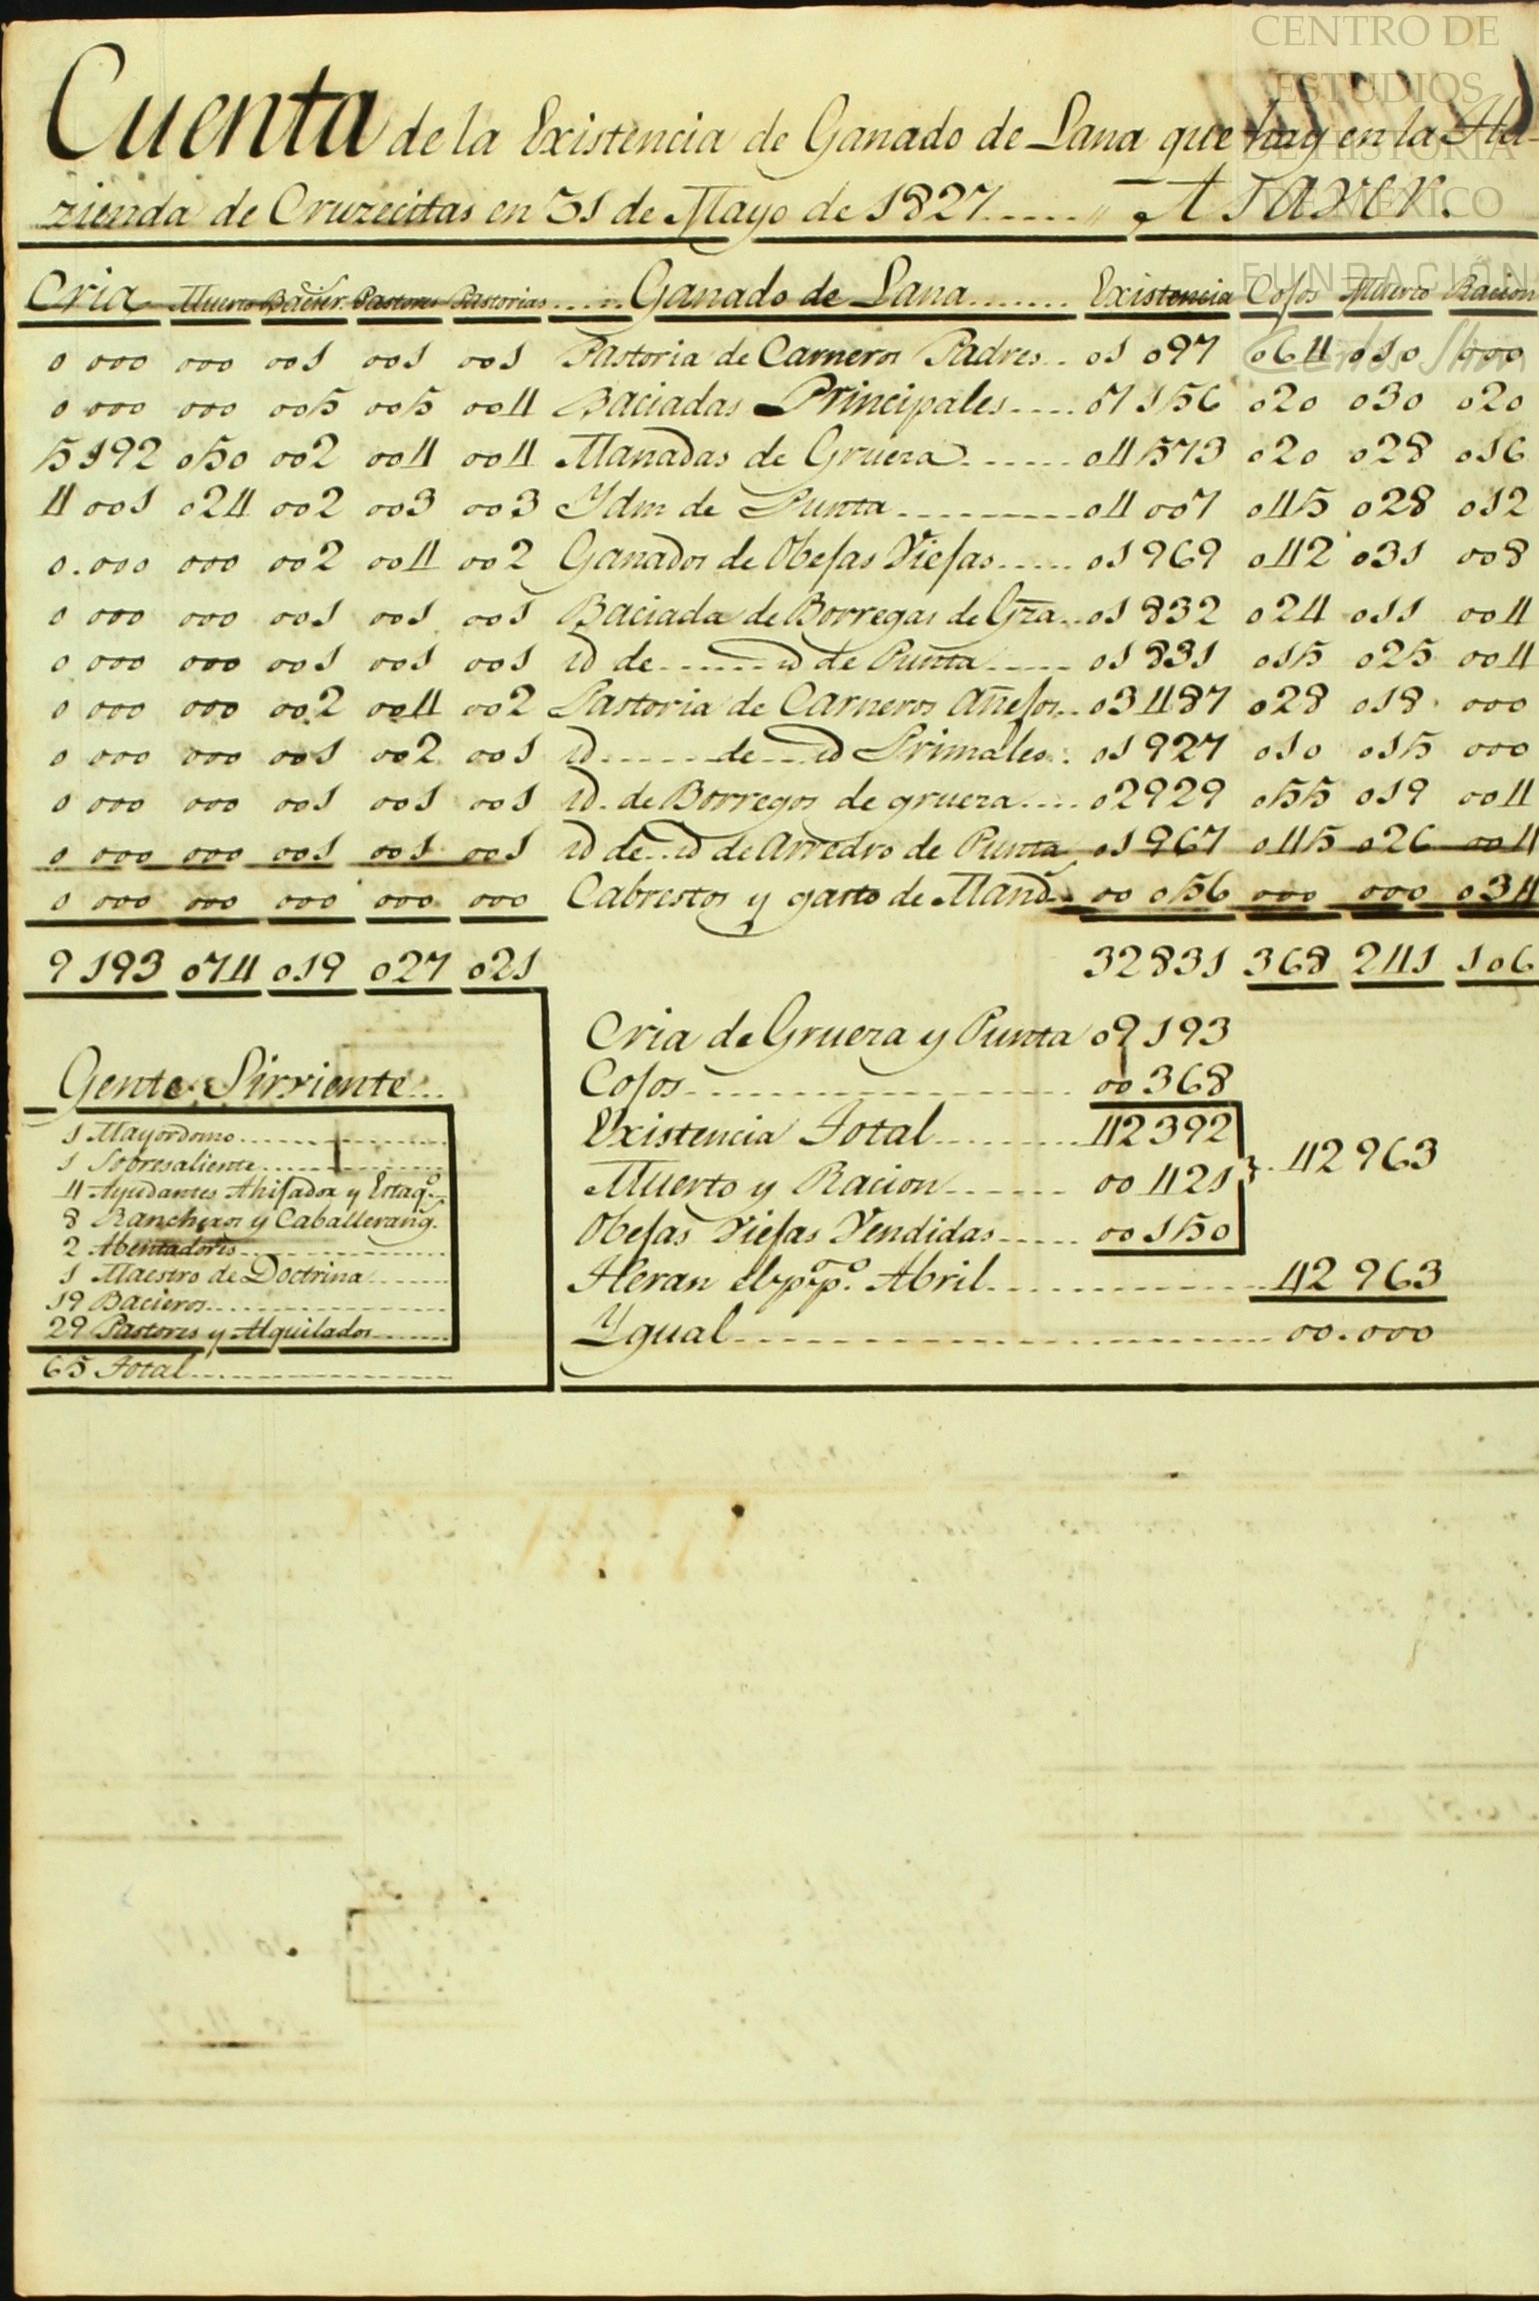 CENTRO DE
ESTUDIOS
DE HISTORIA
DE MÉXICO
FUNDACIÓN
Carlos Slim
Cuenta de la Existencia de Ganado de Lana que hay en la Ha-
zienda de Cruzecitas en 31 de Mayo de 1827 A Saver.
Cria Muerto Bacier. Pastores Pastorias Ganado de Lana Existencia Cojos Muerto Racion
0 000 000 001 001 001 Pastoria de Carneros Padres 01 097 064 010 000
0 000 000 005 005 004 Baciadas Principales 07 156 020 030 020
5 192 050 002 004 004 Manadas de Grueza 04 573 020 028 016
4 001 024 002 003 003 Ydm de Punta 04 007 045 028 012
0.000 000 002 004 002 Ganados de Obejas Viejas 01 969 042 031 008
0 000 000 001 001 001 Baciada de Borregas de Gza 01 832 024 011 004
0 000 000 001 001 001 id de id de Punta 01 831 015 025 004
0 000 000 002 004 002 Pastoria de Carneros Añejos 03 487 028 018 000
0 000 000 001 002 001 id de id Primales 01 927 010 015 000
0 000 000 001 001 001 id. de Borregos de grueza 02929 055 019 004
0 000 000 001 001 001 id de id de Arredro de Punta 01 967 045 026 004
0 000 000 000 000 000 Cabrestos y gasto de Mand 00 056 000 000 034
9 193 074 019 027 021 32831 368 241 106
Cria de Grueza y Punta 09 193
Cojos 00 368
Existencia Total 42 392
Muerto y Racion 00 421 42 963
Obejas Viejas Vendidas 00 150
Heran el ppº. Abril 42 963
Ygual 00.000
Gente Sirviente
1 Mayordomo
1 Sobresaliente
4 Ayudantes Ahijador y Estaqº
8 Rancheros y Caballerang.
2 Abentadores
1 Maestro de Doctrina
19 Bacieros
29 Pastores y Alquilados
65 Total